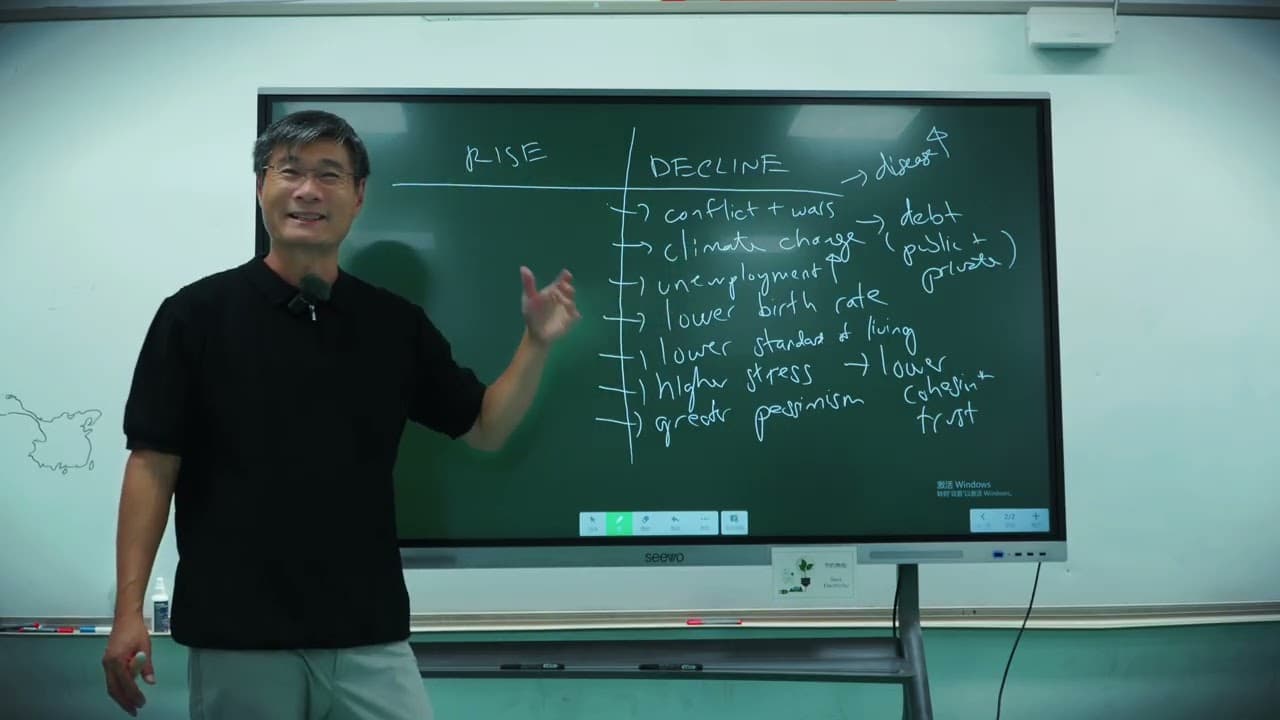 RISE
DECLINE
→ disease ↑
→ conflict + wars
→ debt
(public +
private)
→ climate change
→ unemployment ↑
→ lower birth rate
→ lower standard of living
→ higher stress
→ lower
cohesion +
trust
→ greater pessimism
激活 Windows
转到"设置"以激活 Windows。
2/2
seewo